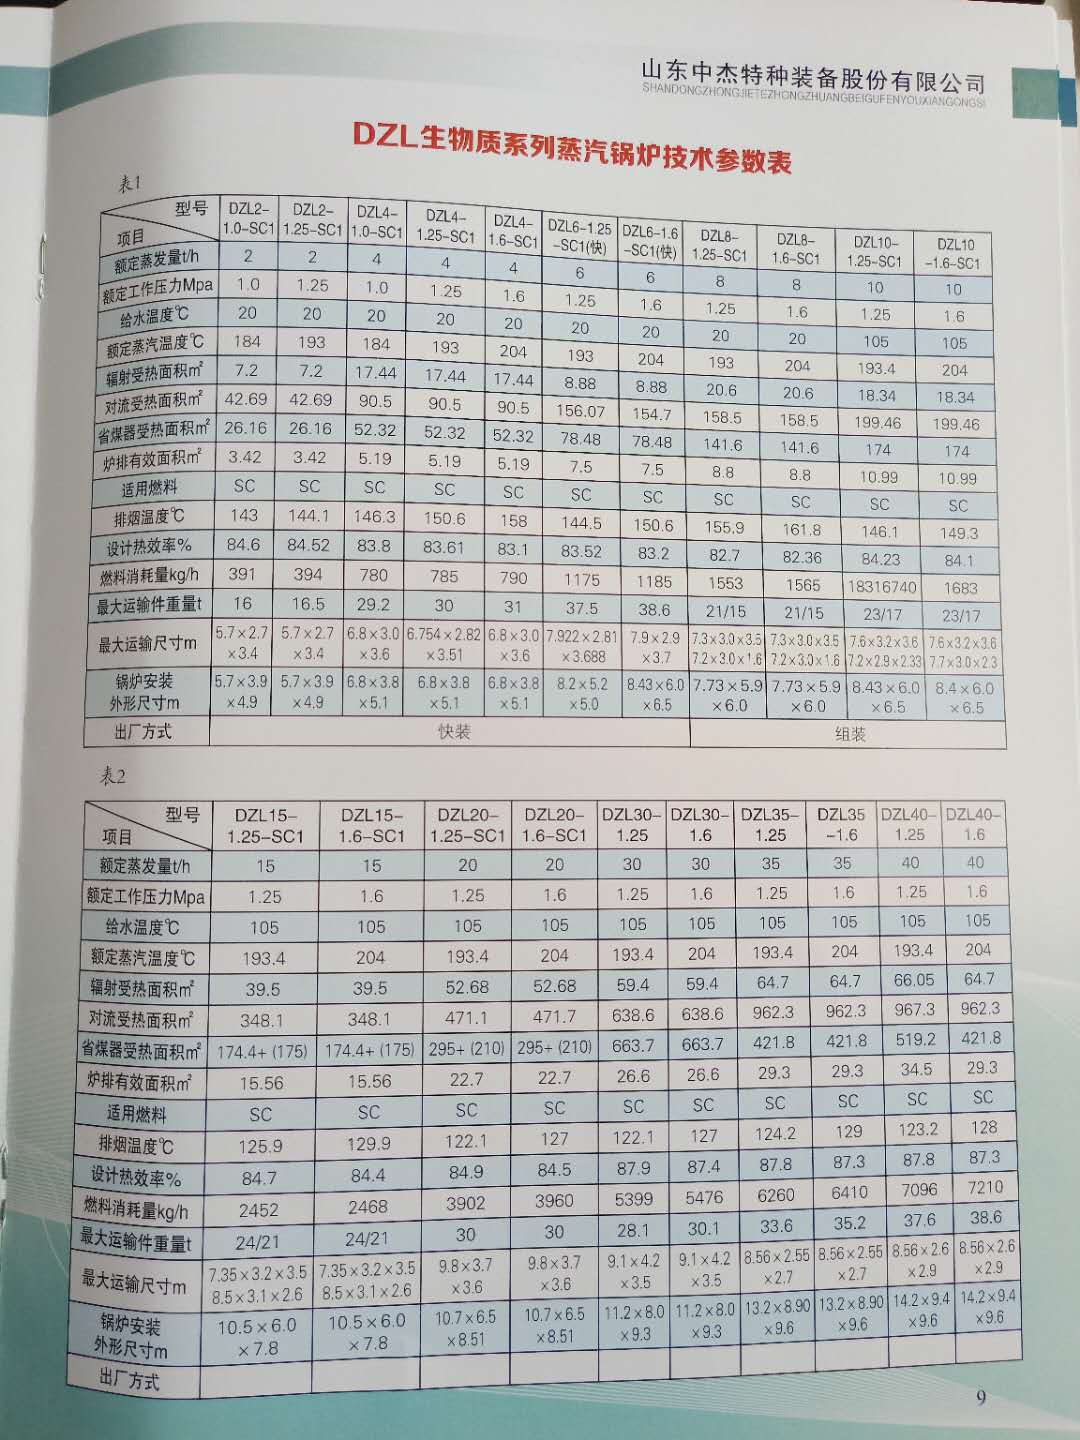 山东中杰特种装备股份有限公司
SHANDONGZHONGJIETEZHONGZHUANGBEIGUFENYOUXIANGONGSI
DZL生物质系列蒸汽锅炉技术参数表
表1
型号 项目 DZL2-1.0-SC1 DZL2-1.25-SC1 DZL4-1.0-SC1 DZL4-1.25-SC1 DZL4-1.6-SC1 DZL6-1.25-SC1(快) DZL6-1.6-SC1(快) DZL8-1.25-SC1 DZL8-1.6-SC1 DZL10-1.25-SC1 DZL10-1.6-SC1
额定蒸发量t/h 2 2 4 4 4 6 6 8 8 10 10
额定工作压力Mpa 1.0 1.25 1.0 1.25 1.6 1.25 1.6 1.25 1.6 1.25 1.6
给水温度℃ 20 20 20 20 20 20 20 20 20 105 105
额定蒸汽温度℃ 184 193 184 193 204 193 204 193 204 193.4 204
辐射受热面积㎡ 7.2 7.2 17.44 17.44 17.44 8.88 8.88 20.6 20.6 18.34 18.34
对流受热面积㎡ 42.69 42.69 90.5 90.5 90.5 156.07 154.7 158.5 158.5 199.46 199.46
省煤器受热面积㎡ 26.16 26.16 52.32 52.32 52.32 78.48 78.48 141.6 141.6 174 174
炉排有效面积㎡ 3.42 3.42 5.19 5.19 5.19 7.5 7.5 8.8 8.8 10.99 10.99
适用燃料 SC SC SC SC SC SC SC SC SC SC SC
排烟温度℃ 143 144.1 146.3 150.6 158 144.5 150.6 155.9 161.8 146.1 149.3
设计热效率% 84.6 84.52 83.8 83.61 83.1 83.52 83.2 82.7 82.36 84.23 84.1
燃料消耗量kg/h 391 394 780 785 790 1175 1185 1553 1565 18316740 1683
最大运输件重量t 16 16.5 29.2 30 31 37.5 38.6 21/15 21/15 23/17 23/17
最大运输尺寸m 5.7×2.7×3.4 5.7×2.7×3.4 6.8×3.0×3.6 6.754×2.82×3.51 6.8×3.0×3.6 7.922×2.81×3.688 7.9×2.9×3.7 7.3×3.0×3.5 7.2×3.0×1.6 7.3×3.0×3.5 7.2×3.0×1.6 7.6×3.2×3.6 7.2×2.9×2.33 7.6×3.2×3.6 7.7×3.0×2.3
锅炉安装外形尺寸m 5.7×3.9×4.9 5.7×3.9×4.9 6.8×3.8×5.1 6.8×3.8×5.1 6.8×3.8×5.1 8.2×5.2×5.0 8.43×6.0×6.5 7.73×5.9×6.0 7.73×5.9×6.0 8.43×6.0×6.5 8.4×6.0×6.5
出厂方式 快装 组装
表2
型号 项目 DZL15-1.25-SC1 DZL15-1.6-SC1 DZL20-1.25-SC1 DZL20-1.6-SC1 DZL30-1.25 DZL30-1.6 DZL35-1.25 DZL35-1.6 DZL40-1.25 DZL40-1.6
额定蒸发量t/h 15 15 20 20 30 30 35 35 40 40
额定工作压力Mpa 1.25 1.6 1.25 1.6 1.25 1.6 1.25 1.6 1.25 1.6
给水温度℃ 105 105 105 105 105 105 105 105 105 105
额定蒸汽温度℃ 193.4 204 193.4 204 193.4 204 193.4 204 193.4 204
辐射受热面积㎡ 39.5 39.5 52.68 52.68 59.4 59.4 64.7 64.7 66.05 64.7
对流受热面积㎡ 348.1 348.1 471.1 471.7 638.6 638.6 962.3 962.3 967.3 962.3
省煤器受热面积㎡ 174.4+(175) 174.4+(175) 295+(210) 295+(210) 663.7 663.7 421.8 421.8 519.2 421.8
炉排有效面积㎡ 15.56 15.56 22.7 22.7 26.6 26.6 29.3 29.3 34.5 29.3
适用燃料 SC SC SC SC SC SC SC SC SC SC
排烟温度℃ 125.9 129.9 122.1 127 122.1 127 124.2 129 123.2 128
设计热效率% 84.7 84.4 84.9 84.5 87.9 87.4 87.8 87.3 87.8 87.3
燃料消耗量kg/h 2452 2468 3902 3960 5399 5476 6260 6410 7096 7210
最大运输件重量t 24/21 24/21 30 30 28.1 30.1 33.6 35.2 37.6 38.6
最大运输尺寸m 7.35×3.2×3.5 8.5×3.1×2.6 7.35×3.2×3.5 8.5×3.1×2.6 9.8×3.7×3.6 9.8×3.7×3.6 9.1×4.2×3.5 9.1×4.2×3.5 8.56×2.55×2.7 8.56×2.55×2.7 8.56×2.6×2.9 8.56×2.6×2.9
锅炉安装外形尺寸m 10.5×6.0×7.8 10.5×6.0×7.8 10.7×6.5×8.51 10.7×6.5×8.51 11.2×8.0×9.3 11.2×8.0×9.3 13.2×8.90×9.6 13.2×8.90×9.6 14.2×9.4×9.6 14.2×9.4×9.6
出厂方式
9